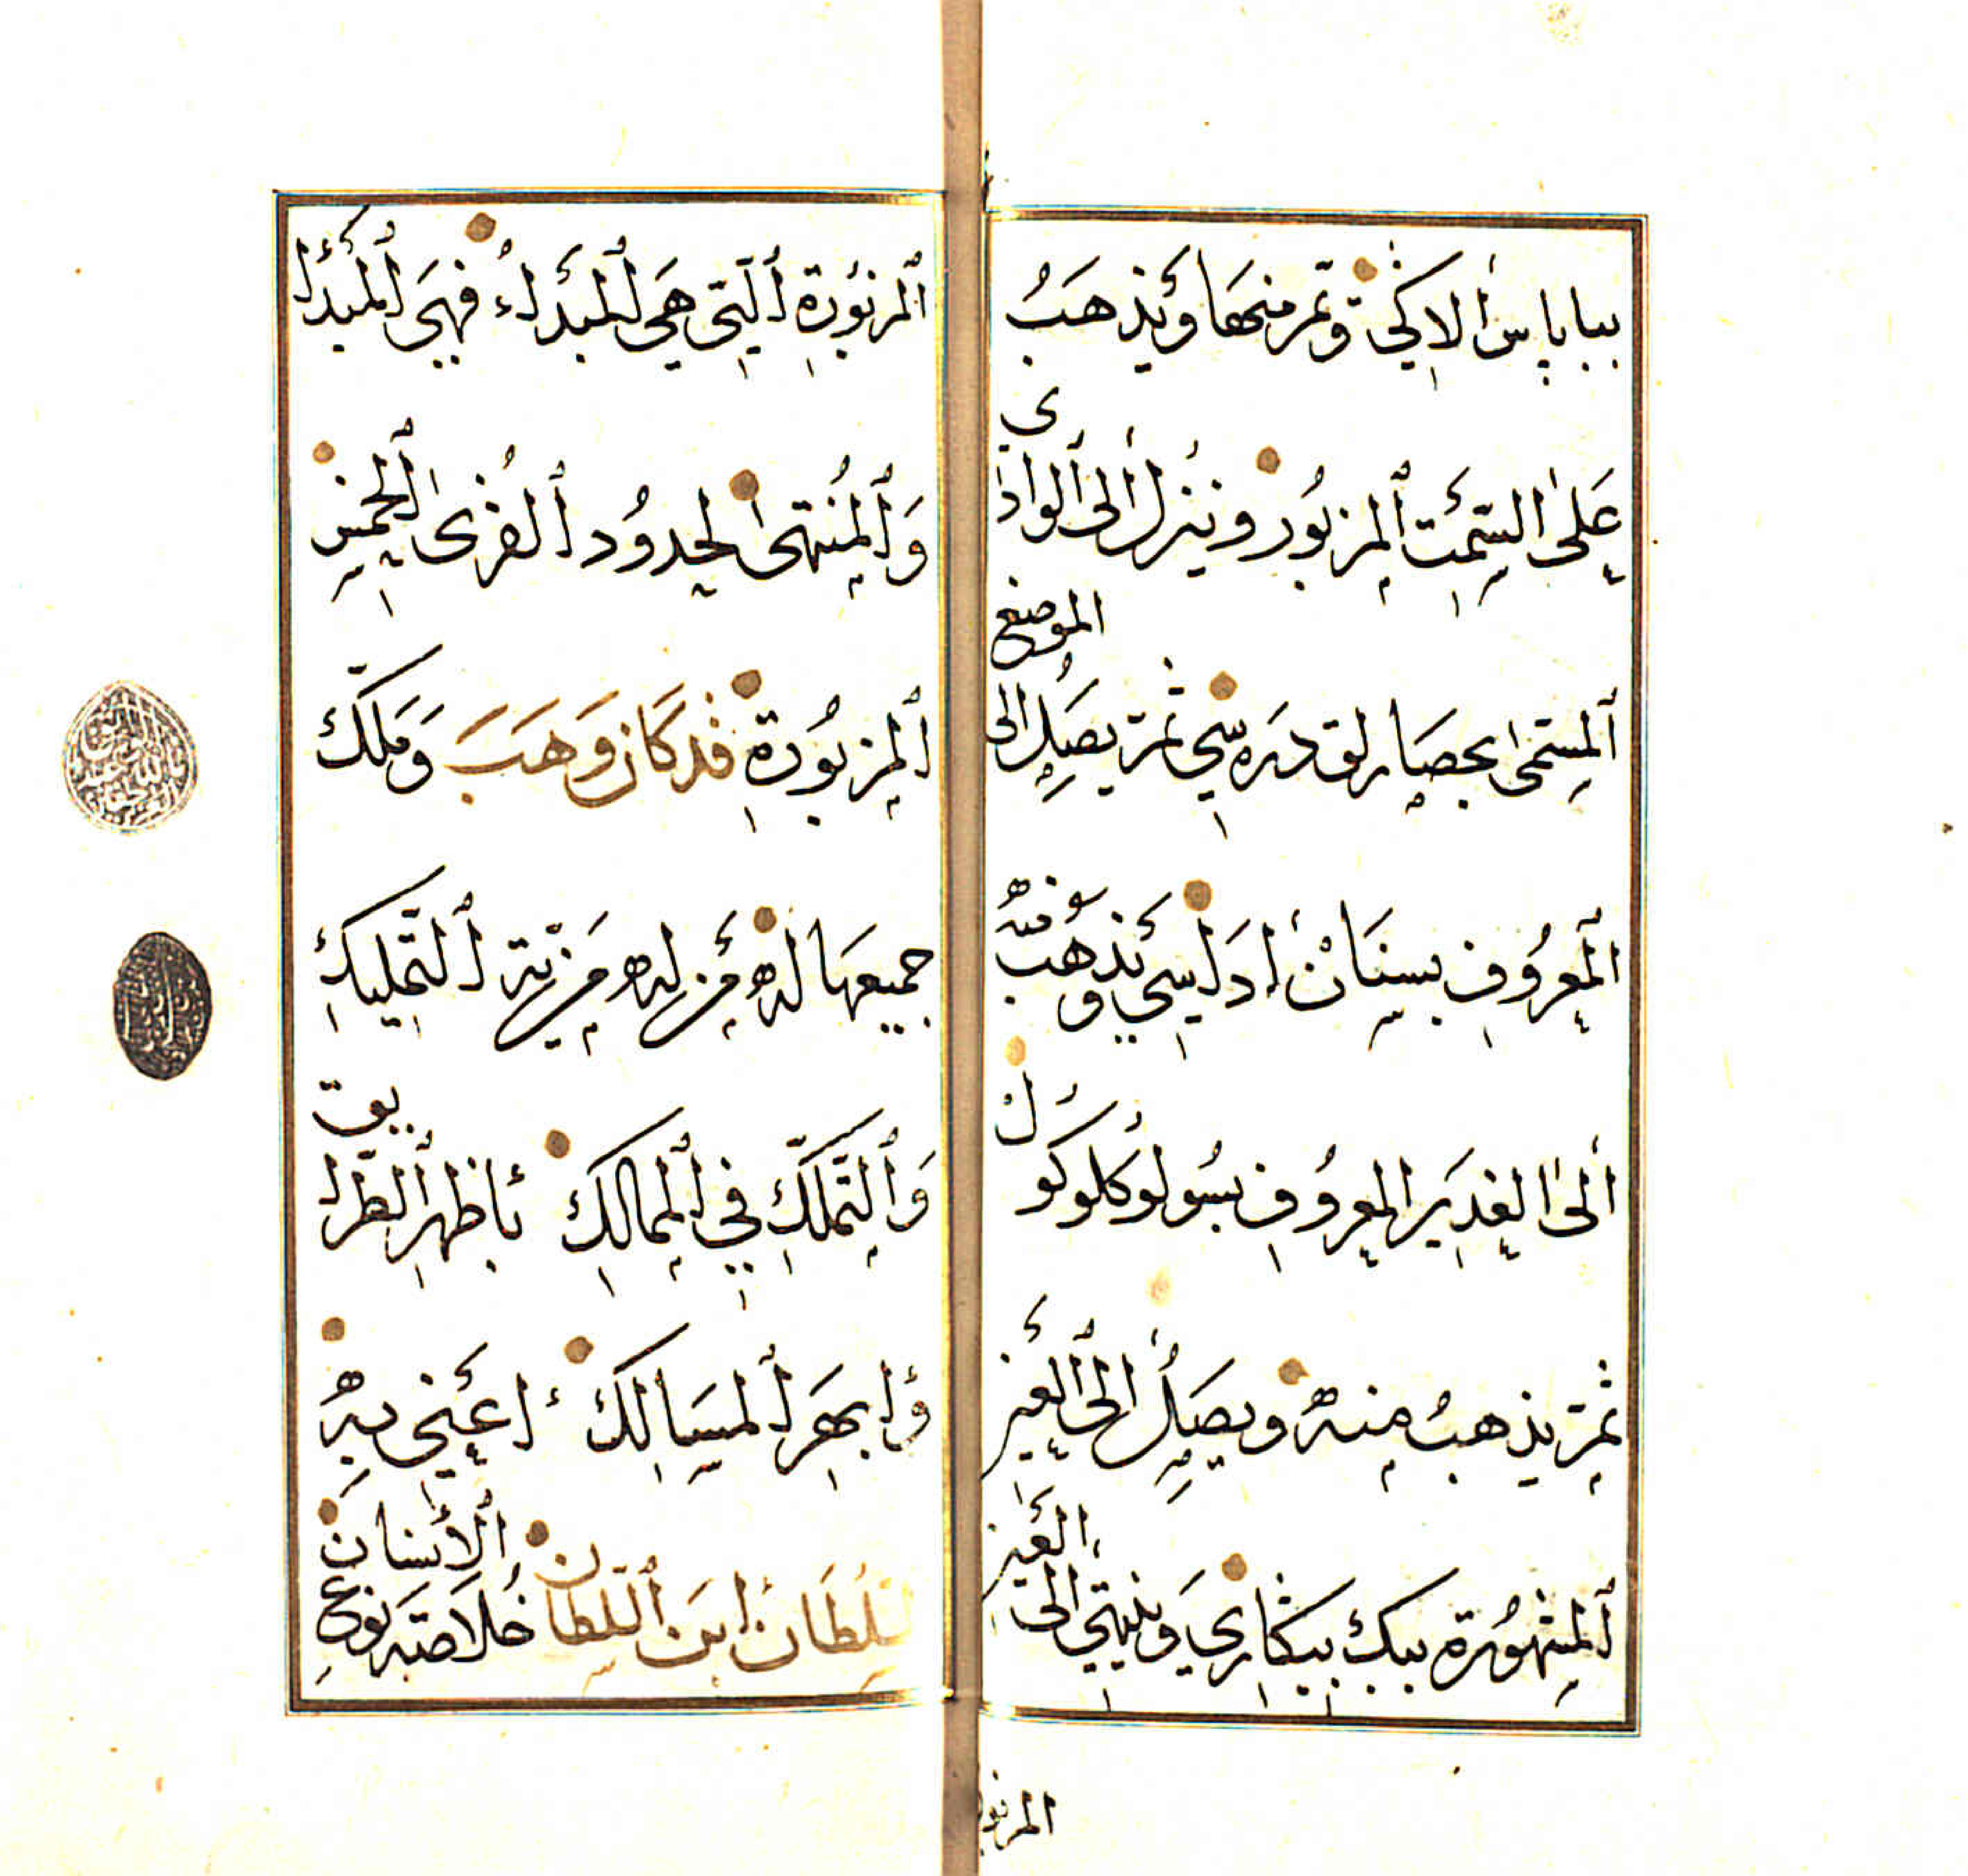 ببابا پاس الاكي ثم تمر منها وتذهب
على السمت المزبور وينزل الى الوادي
المسمى بحصارلق دره سي ثم يصل الى الموضع
المعروف بسنان اداسي ويذهب منه
الى الغدير المعروف بسولوكلو كول
ثم يذهب منه ويصل الى العين
المشهورة ببك بيكاري وينتهي الى العين
المزبورة
المزبورة التي هي المبداء فهي المبدأ
والمنتهى لحدود القرى الخمس
المزبورة قد كان وهب وملك
جميعها له من له مزية التمليك
والتملك في الممالك باظهر الطرايق
وابهر المسالك اعني به
السلطان ابن السلطان خلاصة نوع الانسان